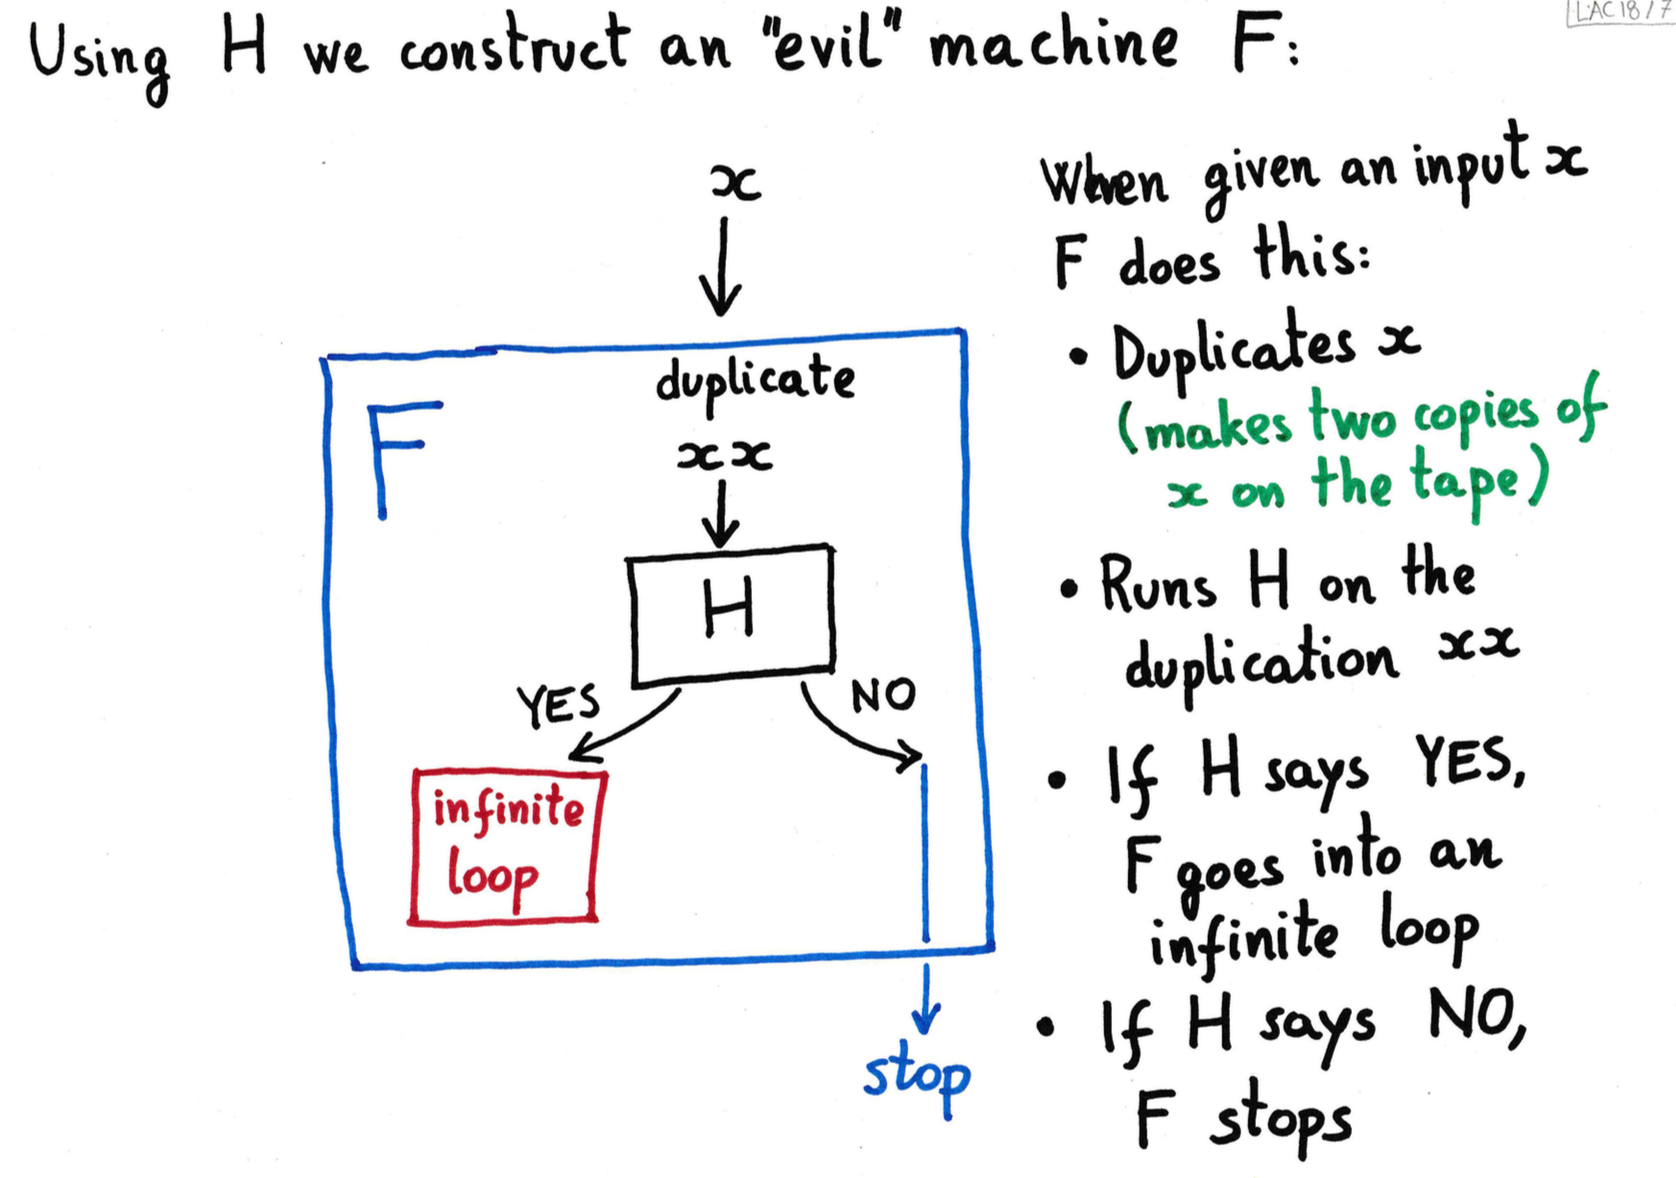 LAC 18/7
Using H we construct an "evil" machine F:
x
duplicate
F
xx
H
YES
NO
infinite
loop
stop
When given an input x
F does this:
• Duplicates x
(makes two copies of
x on the tape)
• Runs H on the
duplication xx
• If H says YES,
F goes into an
infinite loop
• If H says NO,
F stops